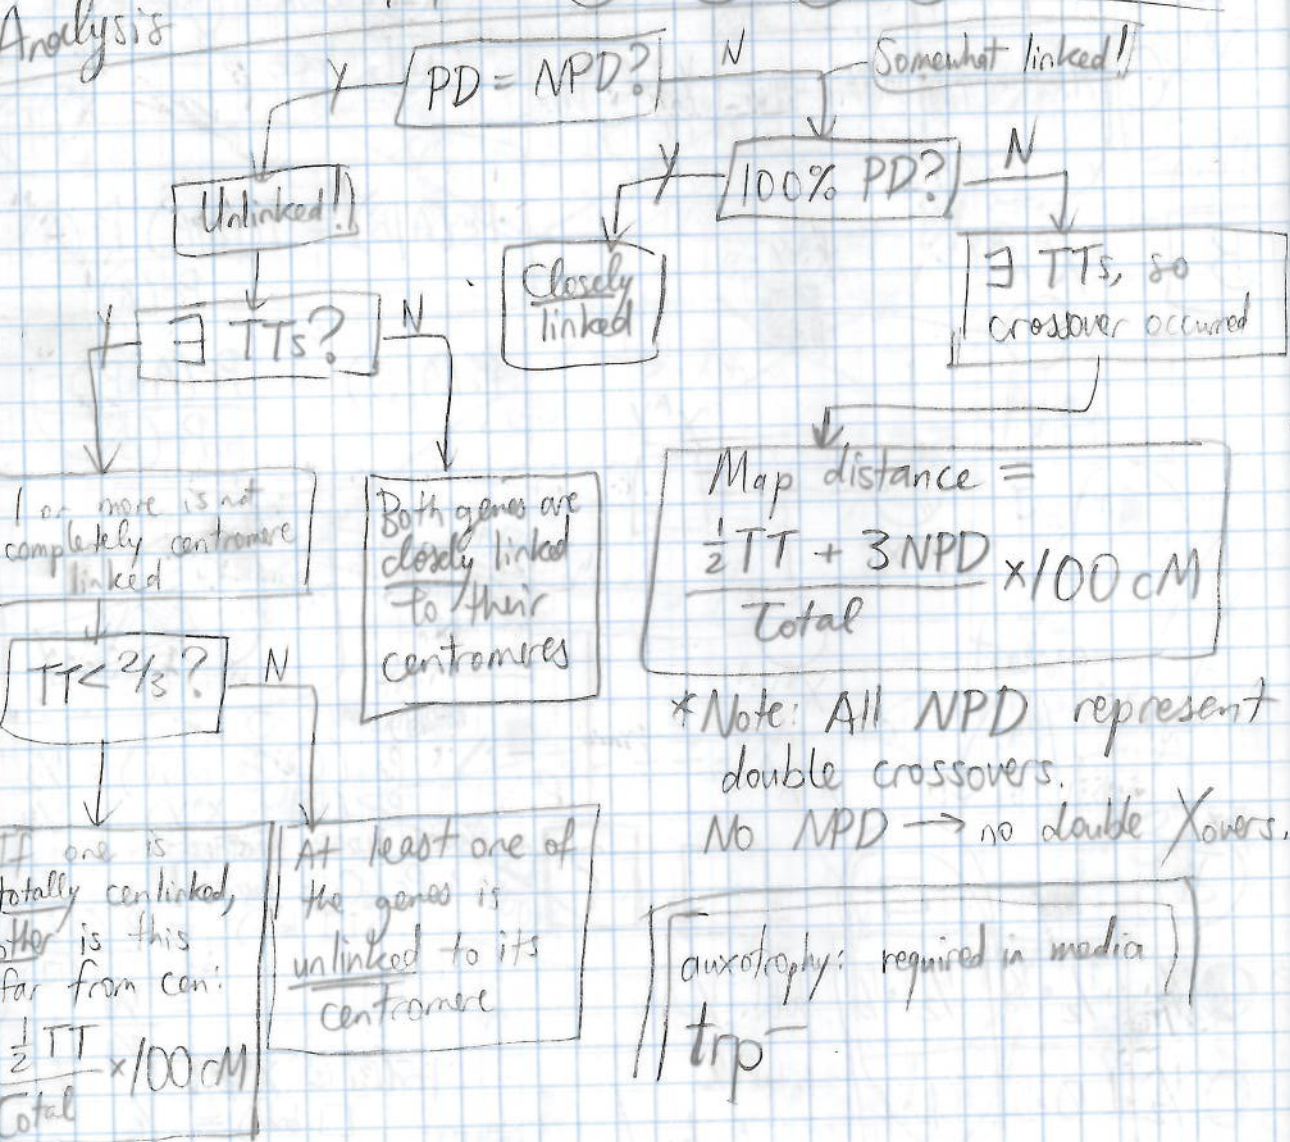 Analysis
PD = NPD?
Y
N
Somewhat linked!
Unlinked!
100% PD?
Y
N
Closely
linked
∃ TTs, so
crossover occurred
∃ TTs?
Y
N
1 or more is not
completely centromere
linked
Both genes are
closely linked
to their
centromeres
Map distance =
½ TT + 3 NPD
Total
×100 cM
TT < 2/3?
N
*Note: All NPD represent
double crossovers.
No NPD → no double Xovers.
If one is
totally cenlinked,
other is this
far from cen:
½ TT
Total
×100 cM
At least one of
the genes is
unlinked to its
centromere
auxotrophy: required in media
trp⁻